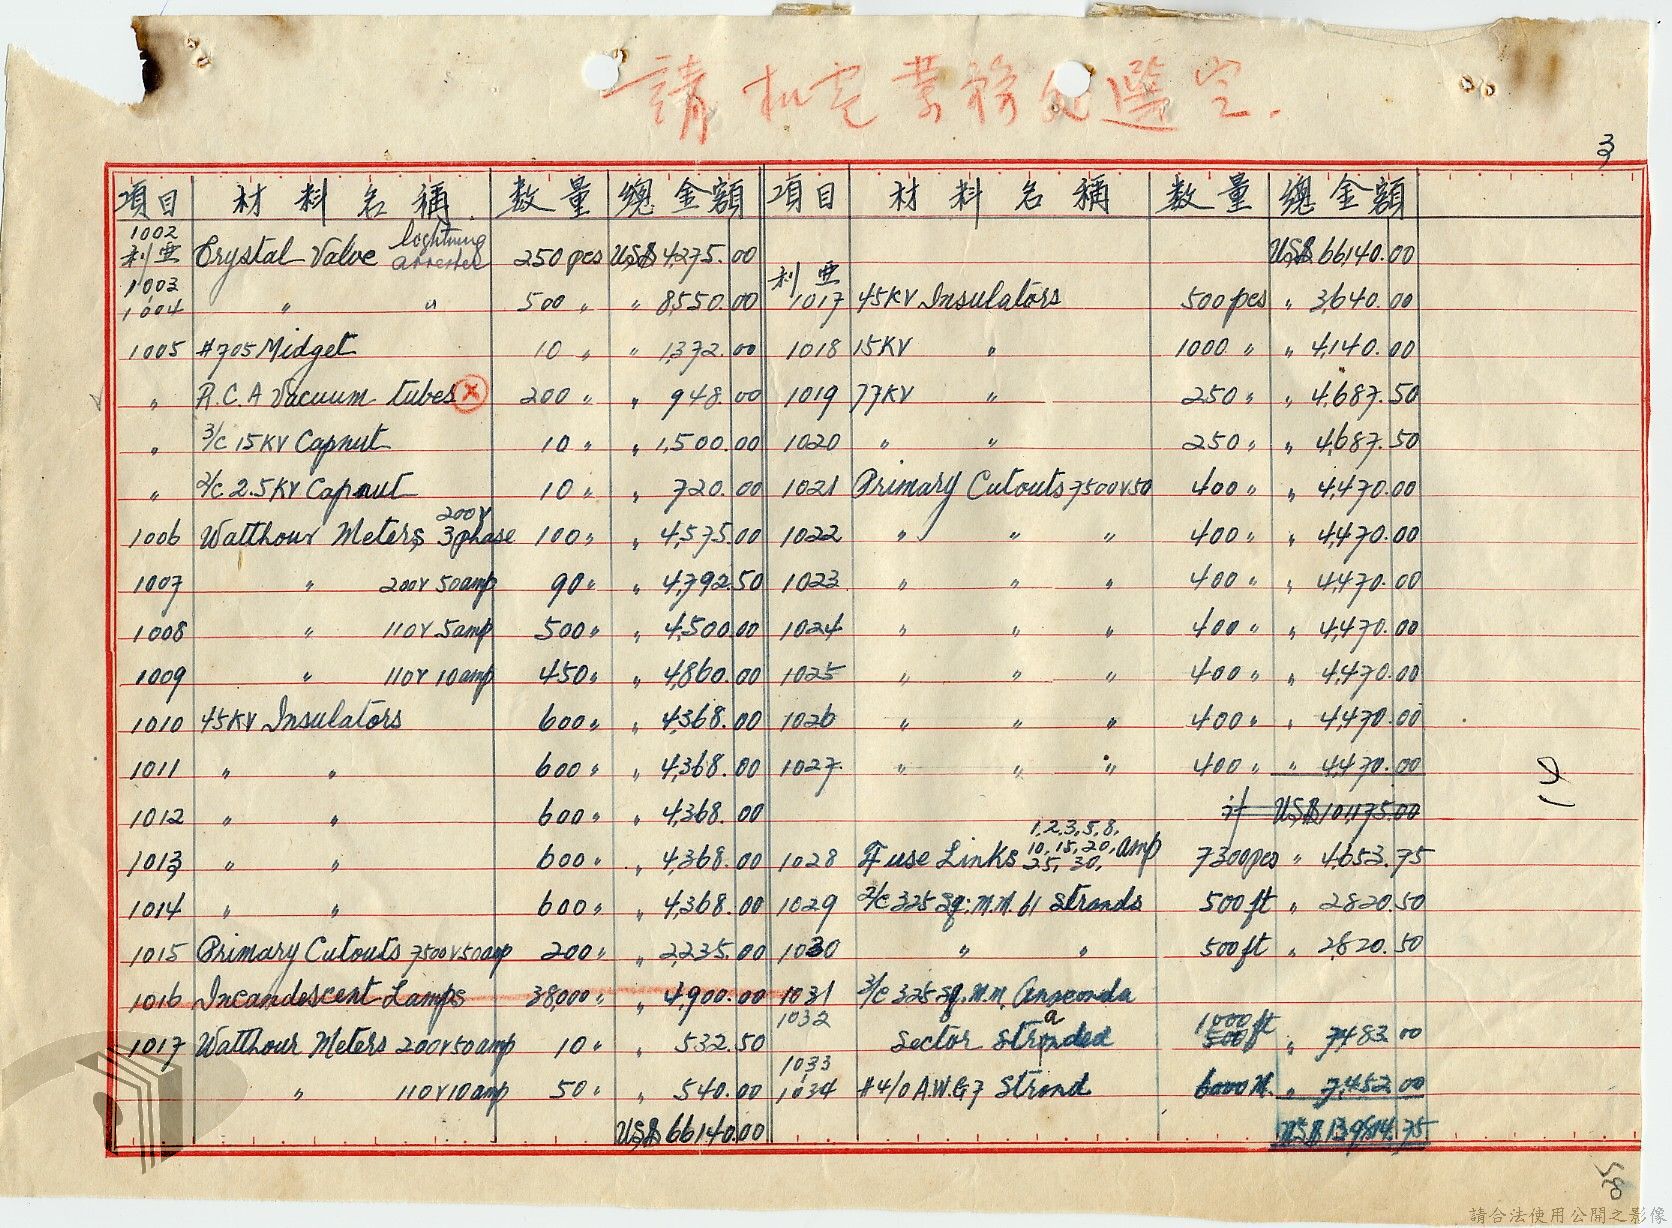 請 核定 業務處選定.
3
項目 材料名稱 数量 總金額 項目 材料名稱 数量 總金額
1002 利亜 Crystal Valve lightning arrester 250 pcs US$ 4,275.00 US$ 66,140.00
1003 1004 〃 〃 500 〃 〃 8,550.00 利亜 1017 45KV Insulators 500 pcs 〃 3,640.00
1005 #705 Midget 10 〃 〃 1,372.00 1018 15KV 〃 1000 〃 〃 4,140.00
〃 R.C.A Vacuum tubes 200 〃 〃 948.00 1019 77KV 〃 250 〃 〃 4,687.50
〃 3/c 15KV Capnut 10 〃 〃 1,500.00 1020 〃 〃 250 〃 〃 4,687.50
〃 2/c 2.5KV Capnut 10 〃 〃 720.00 1021 Primary Cutouts 7500V50 400 〃 〃 4,470.00
1006 Watthour Meters, 200V 3phase 100 〃 〃 4,575.00 1022 〃 〃 〃 400 〃 〃 4,470.00
1007 〃 200V 50amp 90 〃 〃 4,792.50 1023 〃 〃 〃 400 〃 〃 4,470.00
1008 〃 110V 5amp 500 〃 〃 4,500.00 1024 〃 〃 〃 400 〃 〃 4,470.00
1009 〃 110V 10amp 450 〃 〃 4,860.00 1025 〃 〃 〃 400 〃 〃 4,470.00
1010 45KV Insulators 600 〃 〃 4,368.00 1026 〃 〃 〃 400 〃 〃 4,470.00
1011 〃 〃 600 〃 〃 4,368.00 1027 〃 〃 〃 400 〃 〃 4,470.00
1012 〃 〃 600 〃 〃 4,368.00 計 US$ 101,175.00
1013 〃 〃 600 〃 〃 4,368.00 1028 Fuse Links 1, 2, 3, 5, 8, 10, 15, 20, 25, 30, amp 7300pcs 〃 4,653.75
1014 〃 〃 600 〃 〃 4,368.00 1029 2/c 325 Sq. M.M. 61 Strands 500 ft 〃 2820.50
1015 Primary Cutouts 7500V50amp 200 〃 〃 2,235.00 1030 〃 〃 500 ft 〃 2,820.50
1016 Incandescent Lamps 38,000 〃 〃 4,900.00 1031 3/c 325 Sq. M.M. Anaconda
1017 Watthour Meters 200V50amp 10 〃 〃 532.50 1032 Sector Stranded 1000 ft 500 ft 〃 7,483.00
〃 110V10amp 50 〃 〃 540.00 1033 1034 #4/0 A.W.G 7 Strand 6000 M. 〃 7,452.00
US$ 66,140.00
請合法使用公開之影像